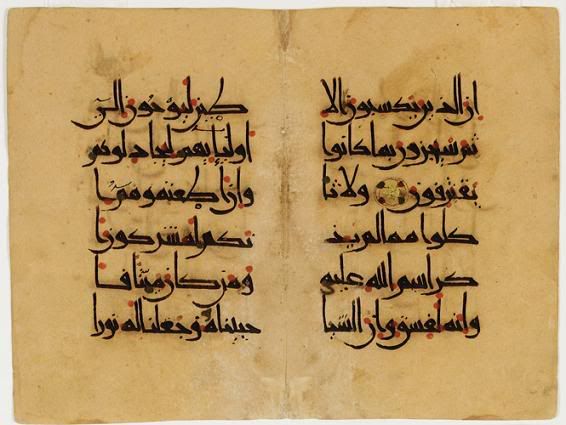 ان الذين يكسبون الا
ثم سيجزون بما كانوا
يقترفون ولا تا
كلوا مما لم يذ
كر اسم الله عليه
وانه لفسق وان الشيا
طين ليوحون الى
اوليآيهم ليجادلوكم
وان اطعتموهم ا
نكم لمشركون ا
ومن كان ميتا فا
حييناه وجعلنا له نورا